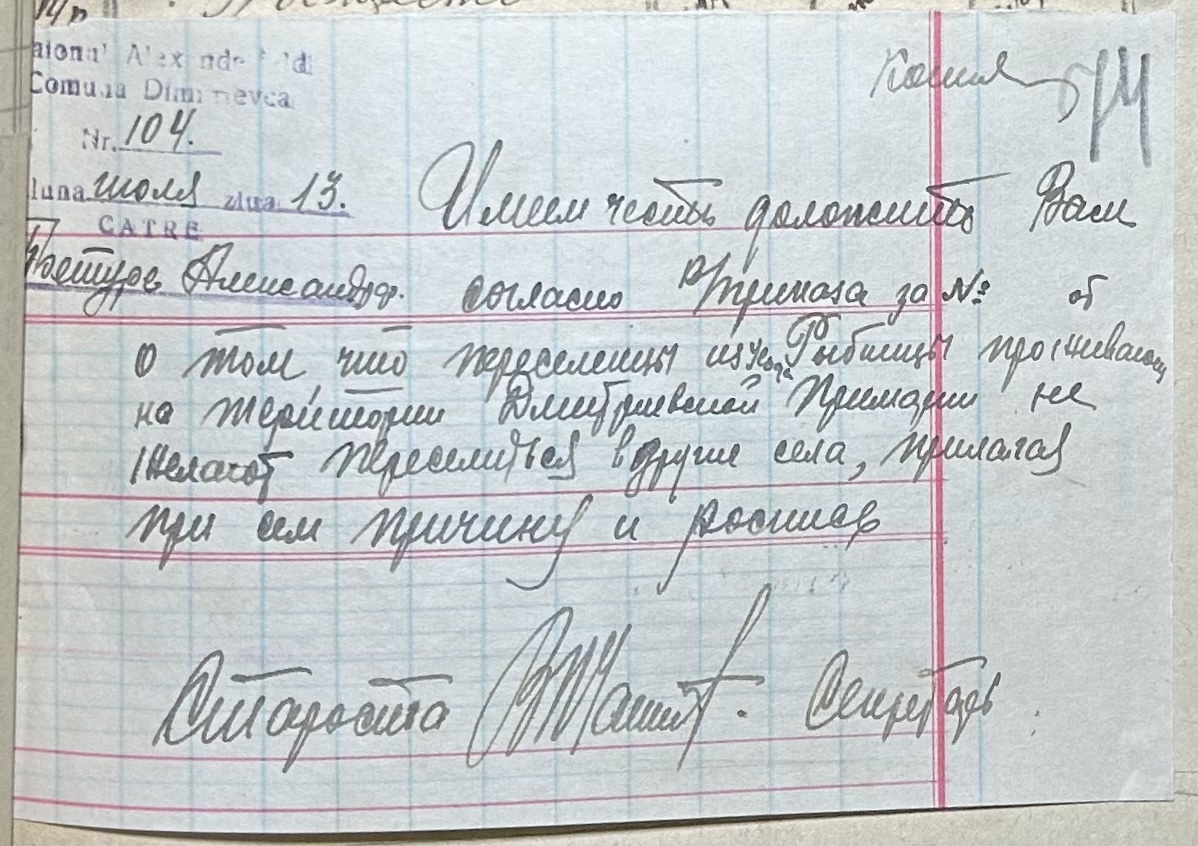 Копия
Raional Alexandrfeld
Comuna Dimitrievca
Nr. 104.
luna июля ziua 13.
CATRE
Претура Александрф.
Имеем честь доложить Вам
согласно Приказа за № от
о том, что переселенцы из уезда Рыбницы проживающ
на територии Дмитриевской Примарии не
желают переселиться в другие села, прилагая
при сем причину и роспись
Староста Секретарь